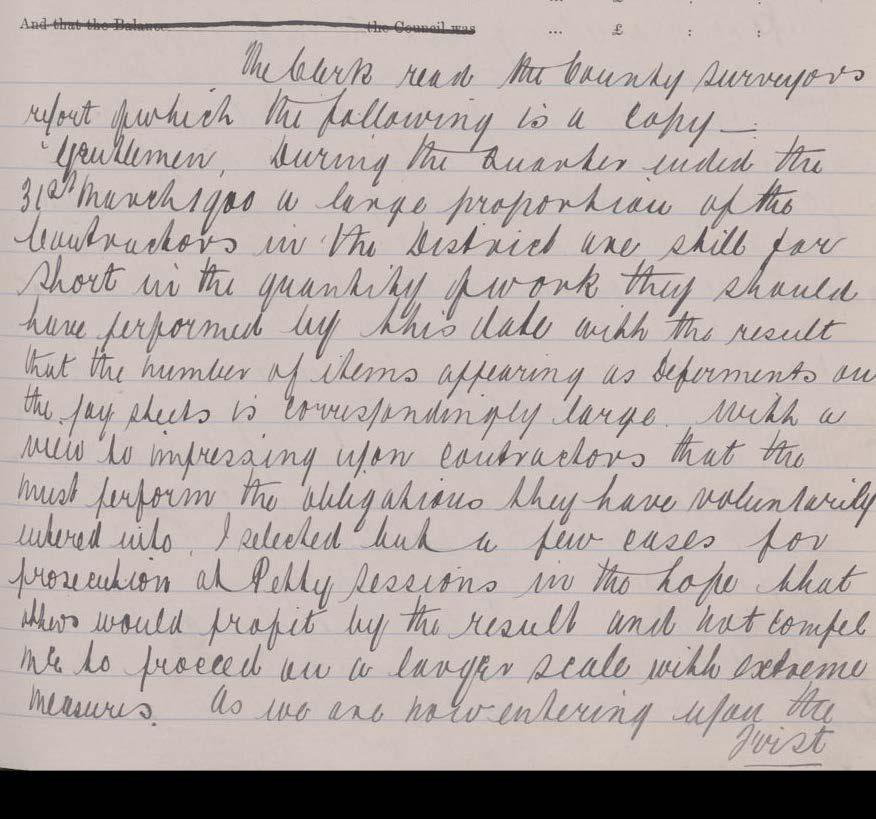 ... £ : :
And that the Balance the Council was ... £ : :
The Clerk read the County Surveyors
report of which the following is a copy —
"Gentlemen, During the Quarter ended the
31st March 1900 a large proportion of the
Contractors in the District are still far
short in the quantity of work they should
have performed by this date with the result
that the number of items appearing as Deferments on
the pay sheets is correspondingly large. With a
view to impressing upon contractors that the
must perform the obligations they have voluntarily
entered into, I selected but a few cases for
prosecution at Petty Sessions in the hope that
others would profit by the result and not compel
me to proceed on a larger scale with extreme
measures. As we are now entering upon the
first